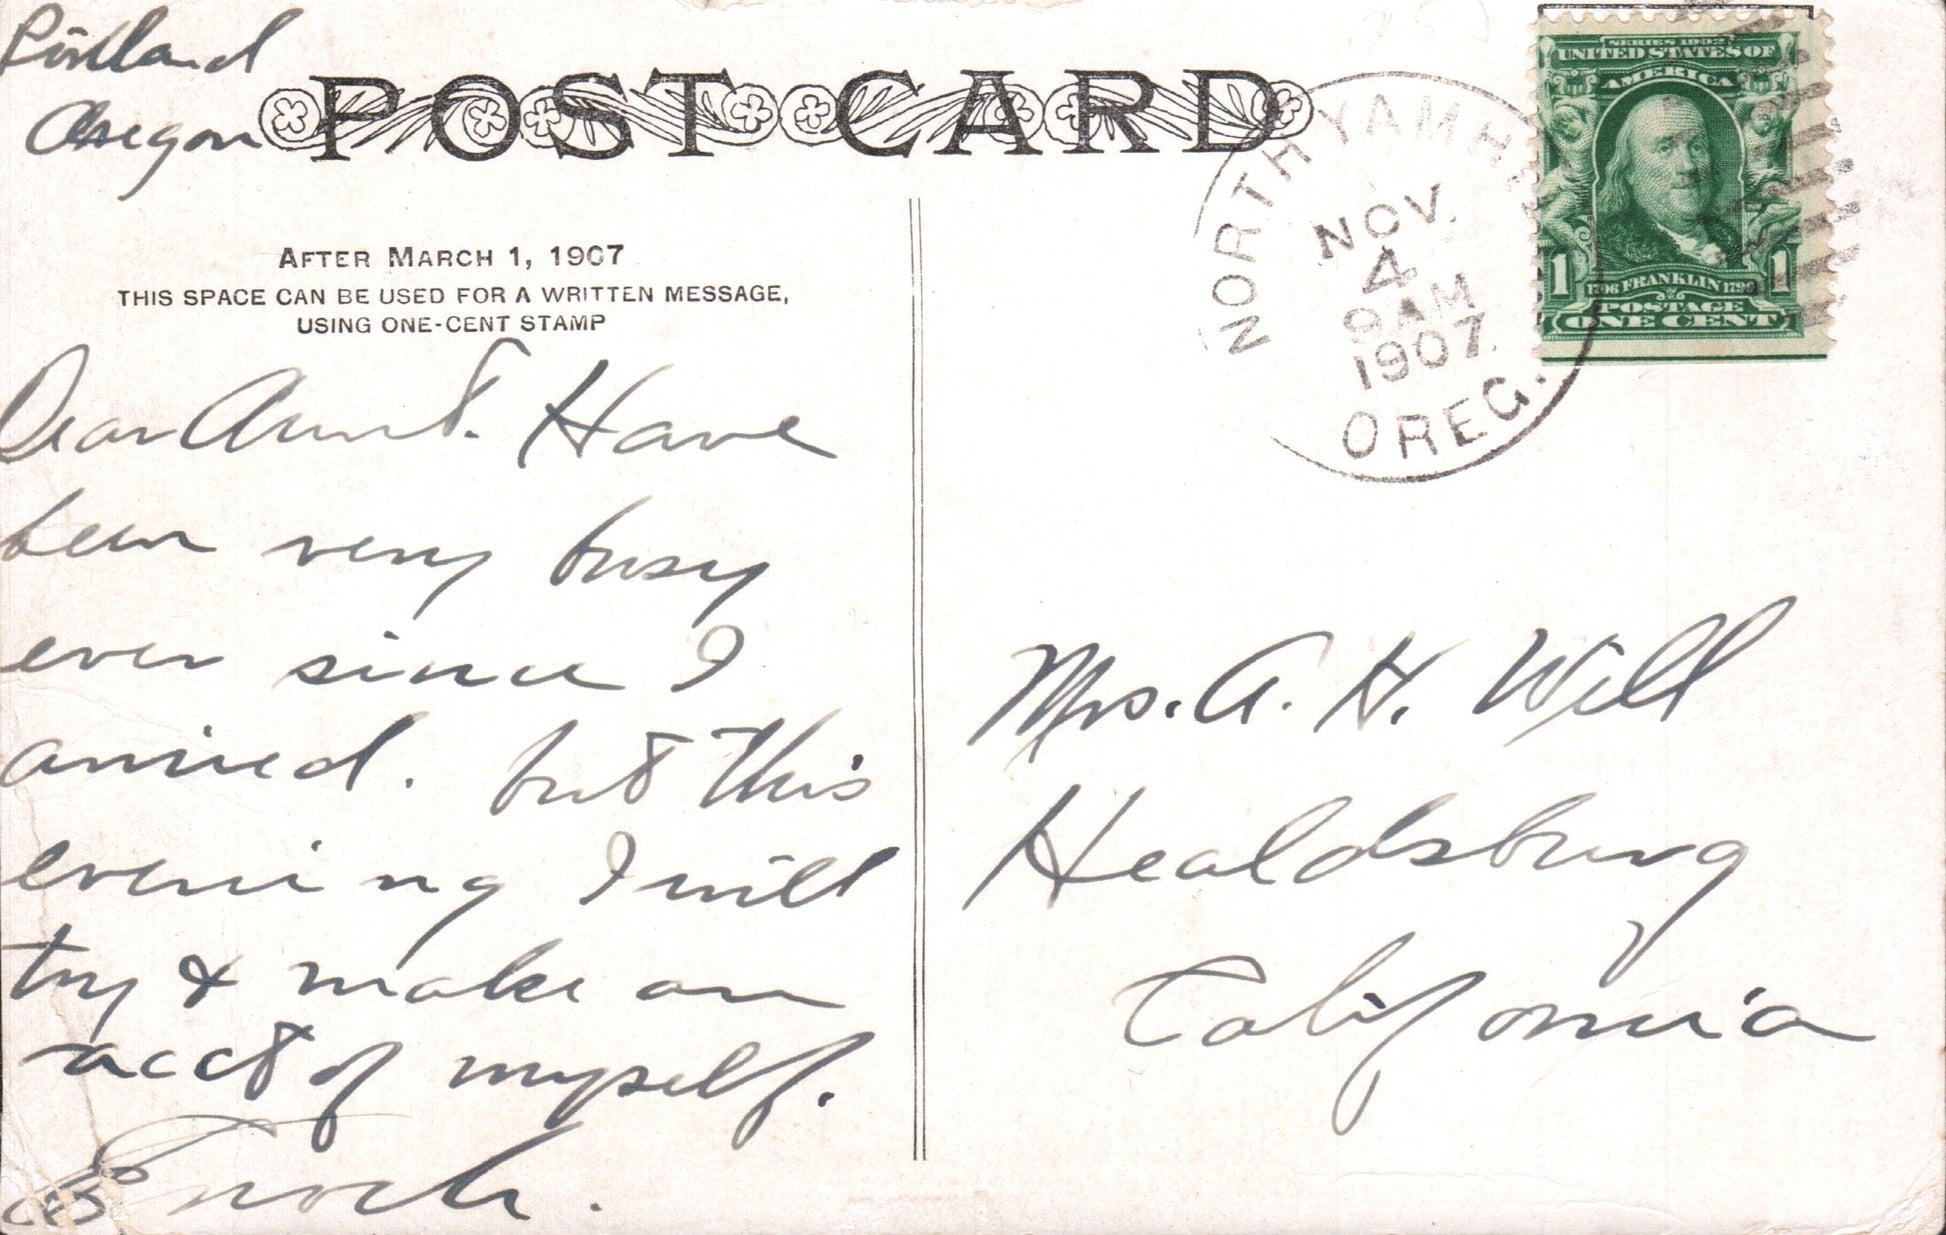 Portland
Oregon
POST CARD
AFTER MARCH 1, 1907
THIS SPACE CAN BE USED FOR A WRITTEN MESSAGE,
USING ONE-CENT STAMP
Dear Aunt. Have
been very busy
ever since I
arrived. but this
evening I will
try & make an
acct of myself.
Enoch.
NORTH YAMH
NOV.
4
9 AM
1907.
OREG.
SERIES 1902
UNITED STATES OF
AMERICA
1 1
1706 FRANKLIN 1790
POSTAGE
ONE CENT
Mrs. A. H. Will
Healdsburg
California